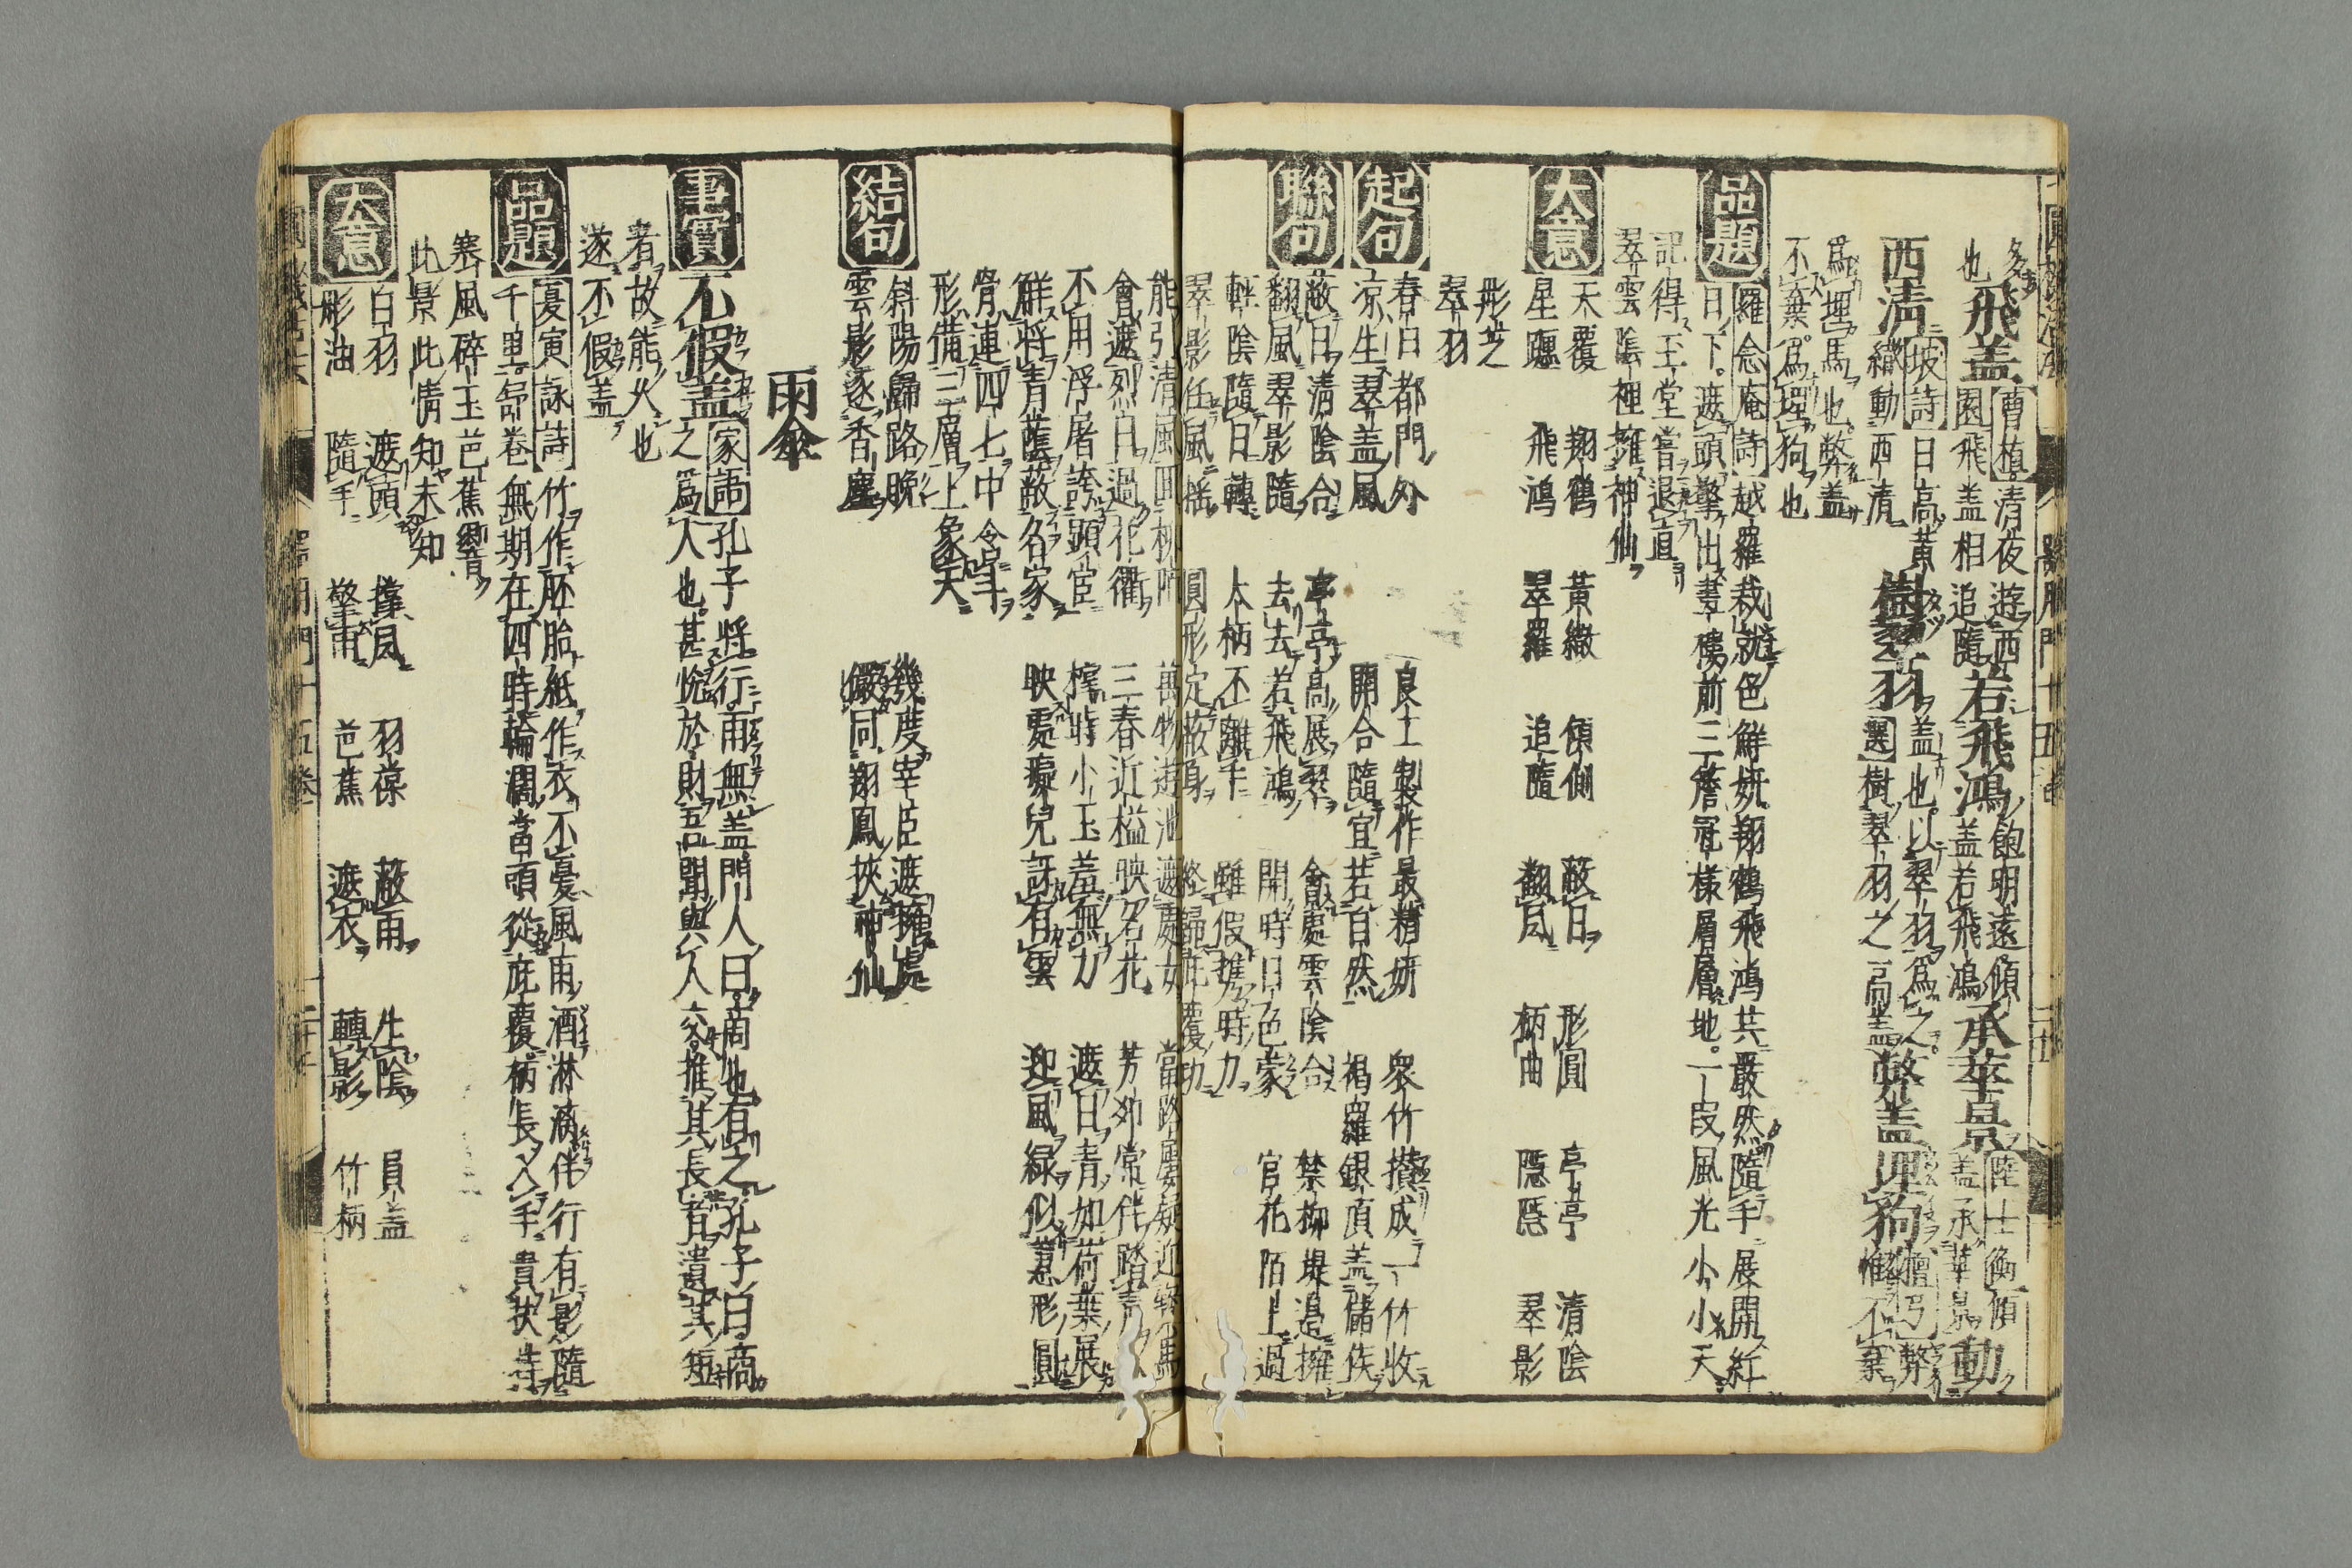 多
也飛盖曹植清夜遊西
園飛盖相追隨若飛鴻飽明遠傾
盖若飛鴻承華景陸士衡傾
盖承華景動
西清坡詩日高黃
繖動西清樹翠羽選盖也以翠羽爲之
樹翠羽之高盖弊盖埋狗檀弓弊
惟不棄
爲埋馬也弊盖
不棄爲埋狗也
品題
羅念庵詩越羅裁就色鮮妍翔鶴飛鴻共嚴然隨手展開紅
日下遮頭擎出晝樓前三簷冠樣層層地一段風光小小天
記得玉堂嘗退直
翠雲陰裡擁神仙
大意
天覆 翔鶴 黃繖 傾側 蔽日 形圓 亭亭 清陰
星躔 飛鴻 翠羅 追隨 翻風 柄曲 隱隱 翠影
形芝
翠羽
起句
春日都門外 良工製作最精妍 衆竹攢成一竹收
凉生翠盖風 開合隨宜若自然 褐羅銀頂盖儲侯
聯句
蔽日清陰合 亭亭高展翠 會處雲陰合 禁柳堤邉擁
翻風翠影隨 去去若飛鴻 開時日色蒙 官花陌上過
輕陰隨日轉 大柄不離手 雖假携時力
翠影任風揺 圓形定蔽身 終歸庇覆功
能引清風 萬物遊 遮處 當路屢疑迎 馬
會遮烈日過花衢 三春近檻映名花 芳郊常伴踏青
不用浮屠誇顯宦 擡時小玉羞無力 遮日青如荷葉展
鮮將青蔭蔽名家 映處癡兒訝有雲 迎風綠似蓋形圓
骨連四七中含斗
形備三層上象天
結句
斜陽歸路晩 幾度宰臣遮擁處
雲影逐香塵 儼同翔鳳挾神仙
雨傘
事實
不假盖家語孔子將行雨無盖門人曰商也有之孔子曰商
之爲人也甚恡於財吾聞與人交推其長者違其短
者故能久也
遂不假盖
品題
夏寅詠詩竹作胚胎紙作衣不憂風雨酒淋漓伴行有影隨
千里舒卷無期在四時輪濶當頭從庇覆柄長入手貴扶持
寒風碎玉芭蕉響
此景此情知未知
大意
白羽 遮頭 撑風 羽葆 蔽雨 生陰 員盖
形油 隨手 擎雨 芭蕉 遮衣 轉影 竹柄